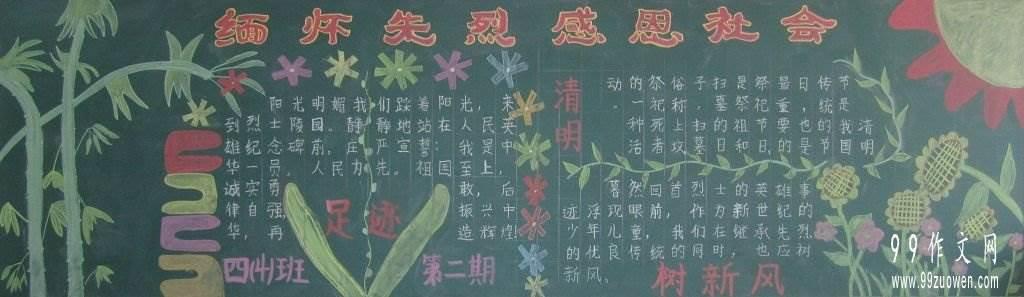 缅怀先烈感恩社会
阳光明媚我们踩着阳光，来
到烈士陵园。静静地站在人民英
雄纪念碑前，庄严宣誓：我是中
华一员。人民为先。祖国至上，
诚实勇敢，后
自强，振兴中
华，再造辉煌
足迹
四(4)班
第二期
清明
清明
节是我国
传统的节
日，也是
最重要的
祭祀节日，
是祭祖和
扫墓的日
子。扫墓
俗称上坟
祭祀死者
的一种活
动。
蓦然回首，烈士的英雄事
迹浮现眼前，我们作力新世纪的
少年儿童，同在继承先烈
优良传统的时，也应树
新风。
树新风
99作文网
www.99zuowen.com